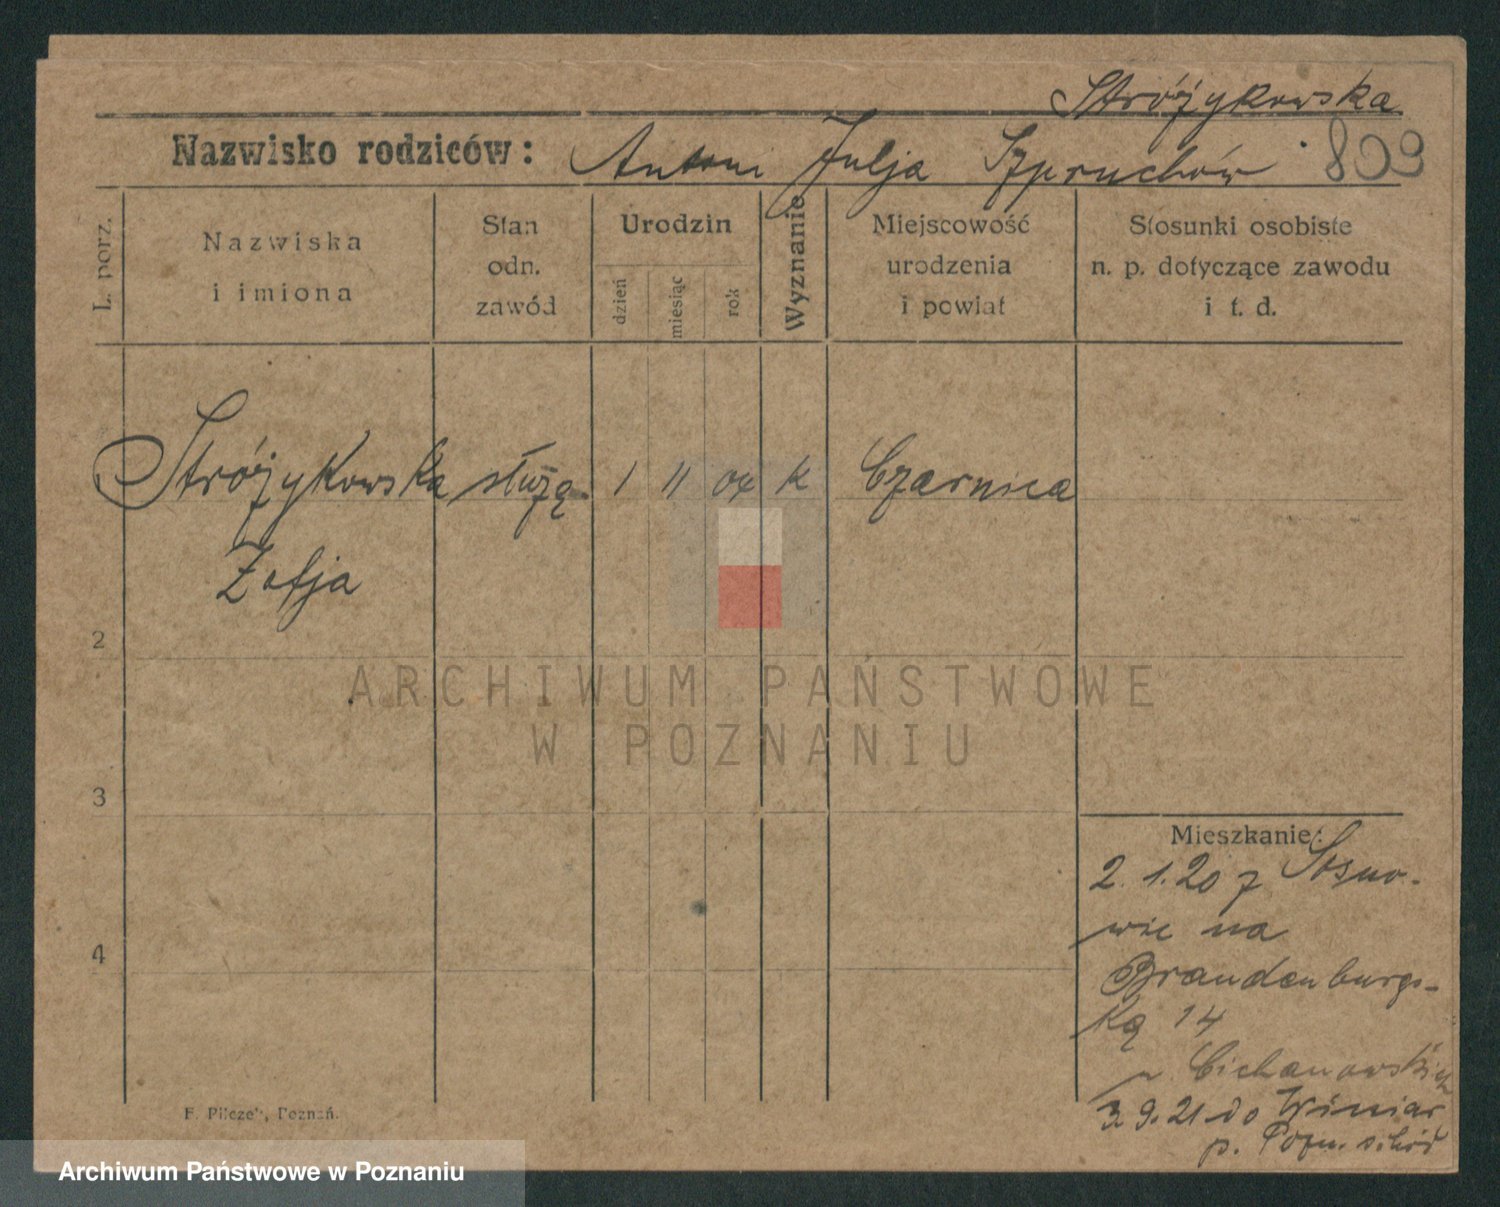 Stróżykowska
Nazwisko rodziców: Antoni Julja Szpruchów
809
L. porz.
Nazwiska
i imiona
Stan
odn.
zawód
Urodzin
dzień
miesiąc
rok
Wyznanie
Miejscowość
urodzenia
i powiat
Stosunki osobiste
n. p. dotyczące zawodu
i t. d.
Stróżykowska służą. 1 11 04 k Czarnica
Zofja
2
3
4
Mieszkanie:
2. 1. 20 z Sosno-
wic na
Brandenburgs-
ką 14
Cichanowskich
9. 21 do Winiar
p. Pozn.
F. Pilczek, Poznań.
ARCHIWUM PAŃSTWOWE
W POZNANIU
Archiwum Państwowe w Poznaniu